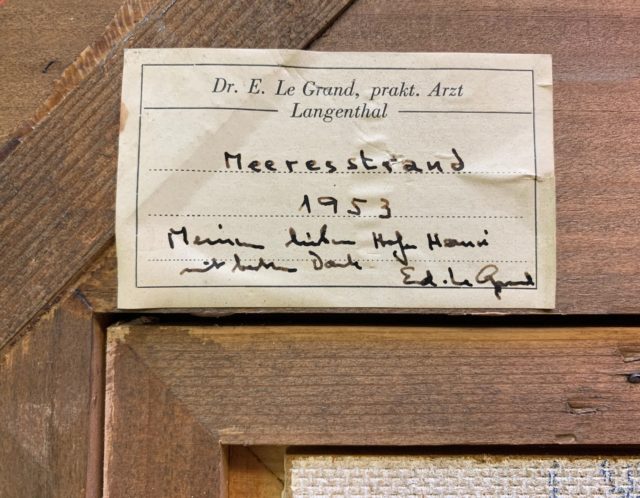 Dr. E. Le Grand, prakt. Arzt
Langenthal
Meeresstrand
1953
Meinem lieben Hansi
mit bestem Dank Ed. Le Grand